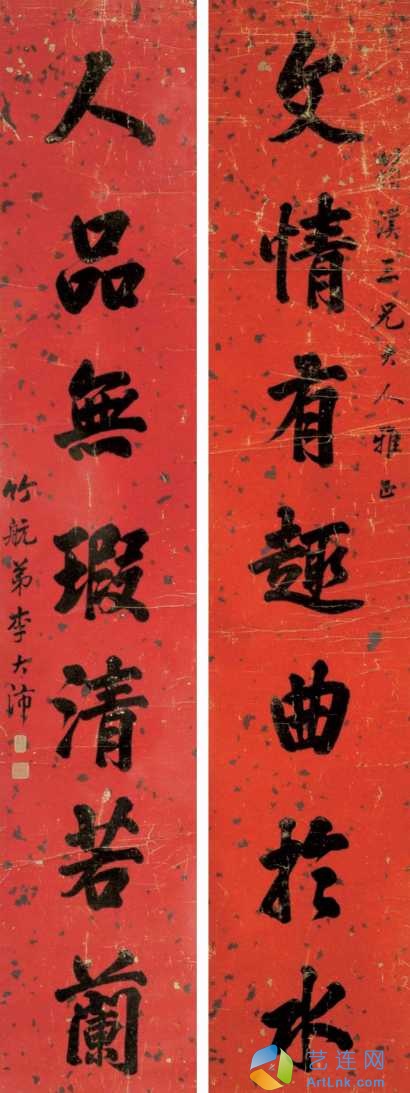 溪三兄大人雅正
文情有趣曲於水
人品無瑕清若蘭
竹航弟李大沛
艺连网
ArtLnk.com